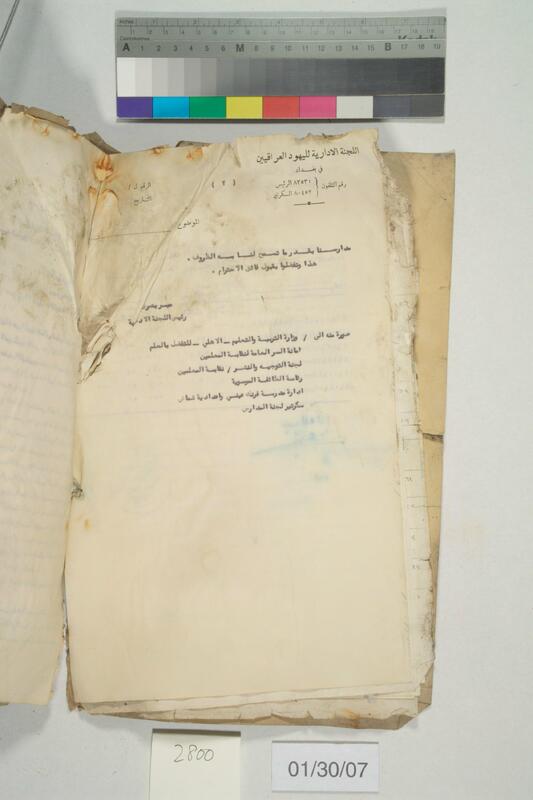 اللجنة الادارية لليهود العراقيين
في بغداد
رقم التلفون ٨٢٥٣١ الرئيس
٨٠٤٥٢ السكرتير
( ٢ )
الرقم ل /
التاريخ
الموضوع
مدارسنا بالقدر ما تسمح لنا به الظروف .
هذا وتفضلوا بقبول فائق الاحترام .
رئيس اللجنة الادارية
صورة منه الى / وزارة التربية والتعليم - الاهلي - للتفضل بالعلم
امانة السر العامة لنقابة المعلمين
لجنة التوجيه والنشر / نقابة المعلمين
رئاسة الطائفة الموسوية
ادارة مدرسة فرنك عيني واعدادية شماش
سكرتير لجنة المدارس
2800
01/30/07